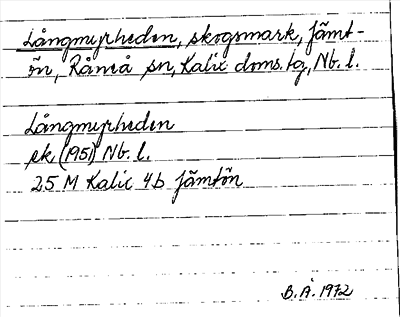 Långmyrheden, skogsmark, Jämt-
ön, Råneå sn, Kalix doms. tg, Nb. l.
Långmyrheden
ek. (1951) Nb. l.
25 M Kalix 4b Jämtön
B. Å. 1972